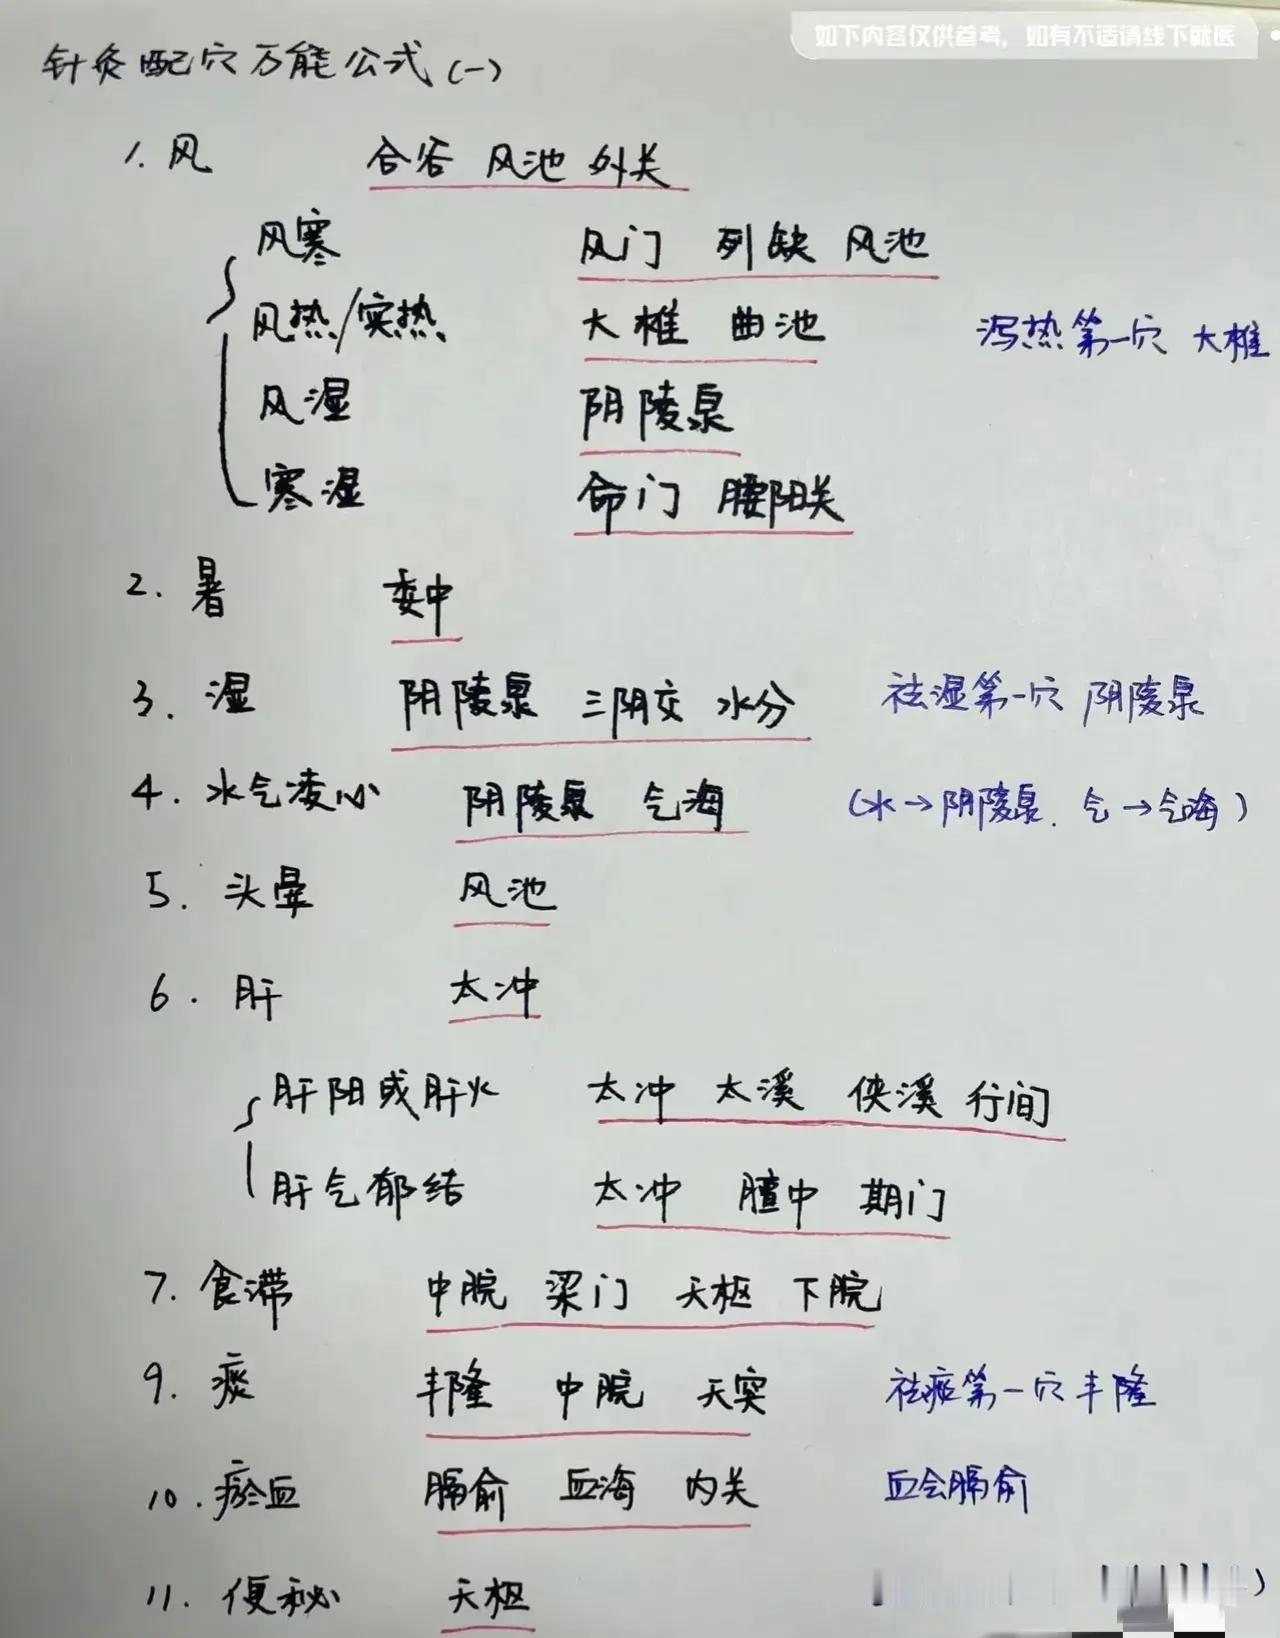 如下内容仅供参考，如有不适请线下就医
针灸配穴万能公式(一)
1. 风 合谷 风池 外关
风寒 风门 列缺 风池
风热/实热 大椎 曲池 泻热第一穴 大椎
风湿 阴陵泉
寒湿 命门 腰阳关
2. 暑 委中
3. 湿 阴陵泉 三阴交 水分 祛湿第一穴 阴陵泉
4. 水气凌心 阴陵泉 气海 (水→阴陵泉. 气→气海)
5. 头晕 风池
6. 肝 太冲
肝阳或肝火 太冲 太溪 侠溪 行间
肝气郁结 太冲 膻中 期门
7. 食滞 中脘 梁门 天枢 下脘
9. 痰 丰隆 中脘 天突 祛痰第一穴 丰隆
10. 瘀血 膈俞 血海 内关 血会膈俞
11. 便秘 天枢